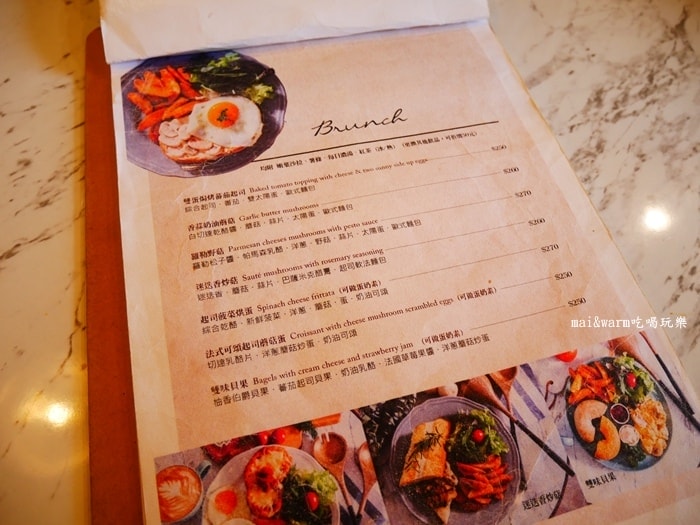 Brunch
均附 嫩葉沙拉、薯條、每日濃湯、紅茶（冰/熱）（更換其他飲品，可折價50元）
雙蛋焗烤蕃茄起司 Baked tomato topping with cheese & two sunny side up eggs $250
綜合起司、番茄、雙太陽蛋、歐式麵包
香蒜奶油蘑菇 Garlic butter mushrooms $200
白切達乾酪醬、蘑菇、蒜片、太陽蛋、歐式麵包
羅勒野菇 Parmesan cheeses mushrooms with pesto sauce $270
羅勒松子醬、帕馬森乳酪、洋蔥、野菇、蒜片、太陽蛋、歐式麵包
迷迭香炒菇 Sauté mushrooms with rosemary seasoning $200
迷迭香、蘑菇、蒜片、巴薩米克醋膏、起司軟法麵包
起司菠菜烘蛋 Spinach cheese frittata（可做蛋奶素） $270
綜合乾酪、新鮮菠菜、洋蔥、蘑菇、蛋、奶油可頌
法式可頌起司蘑菇蛋 Croissant with cheese mushroom scrambled eggs（可做蛋奶素） $250
切達乳酪片、洋蔥蘑菇炒蛋、奶油可頌
雙味貝果 Bagels with cream cheese and strawberry jam（可做蛋奶素） $250
柚香伯爵貝果、蕃茄起司貝果、奶油乳酪、法國草莓果醬、洋蔥蘑菇炒蛋
迷迭香炒菇
雙味貝果
mai&warm吃喝玩樂